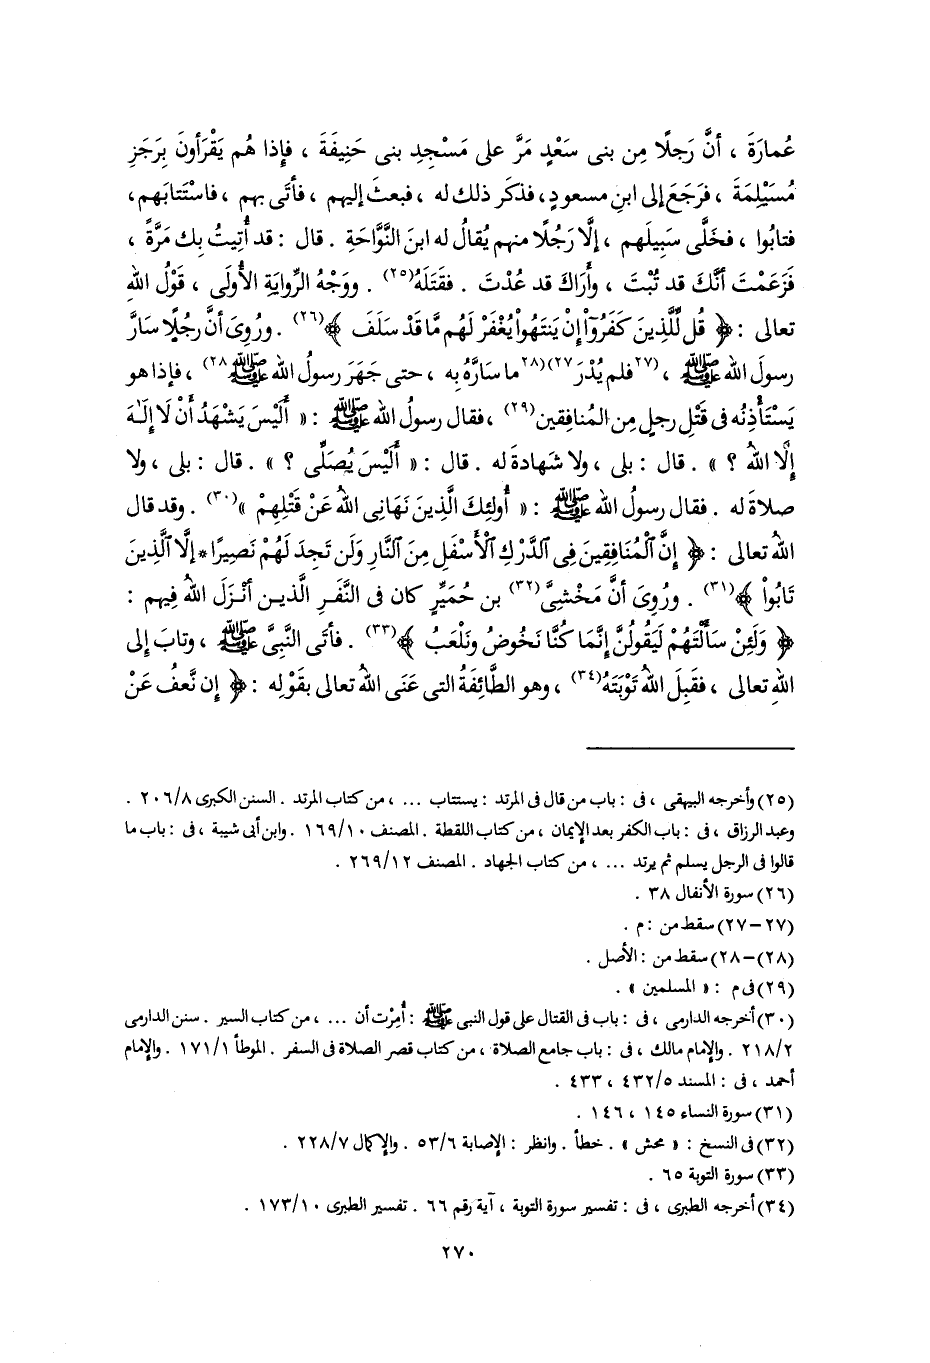 عُمارَةَ ، أنَّ رَجلًا مِن بنى سَعْدٍ مَرَّ على مَسْجِدِ بنى حَنِيفَةَ ، فإذا هُم يَقْرَأونَ بِرَجَزِ
مُسَيْلِمَةَ ، فرَجَعَ إلى ابنِ مسعودٍ، فذكَر ذلك له ، فبعثَ إليهم ، فأتَى بهم ، فاسْتَتابَهم،
فتابُوا ، فخَلَّى سَبِيلَهم ، إلَّا رَجُلًا منهم يُقالُ له ابنَ النَّوَّاحَةِ . قال : قد أُتِيتُ بِك مَرَّةً ،
فَزَعَمْتَ أنَّكَ قد تُبْتَ ، وأَرَاكَ قد عُدْتَ . فقَتَلَهُ(٢٥) . ووَجْهُ الرِّوايَةِ الأُولَى ، قَوْلُ اللهِ
تعالى : ﴿ قُل لِّلَّذِينَ كَفَرُوٓا۟ إِنْ يَنتَهُوا۟ يُغْفَرْ لَهُم مَّا قَدْ سَلَفَ ﴾(٢٦) . ورُوِىَ أنَّ رجُلًا سَارَّ
رسولَ الله ﷺ ، (٢٧فلم يُدْرَ٢٧)(٢٨ما سَارَّهُ به ، حتى جَهَرَ رسولُ الله ﷺ٢٨) ، فإذا هو
يَسْتَأْذِنُه فى قَتْلِ رجلٍ مِن المُنافِقين(٢٩) ، فقال رسولُ الله ﷺ : « أَلَيْسَ يَشْهَدُ أَنْ لَا إِلَـٰهَ
إِلَّا اللهُ ؟ » . قال : بلى ، ولا شهادةَ له . قال : « أَلَيْسَ يُصَلِّى ؟ » . قال : بلى ، ولا
صلاةَ له . فقال رسولُ الله ﷺ : « أُولئِكَ الَّذِينَ نَهَانِى اللهُ عَنْ قَتْلِهِمْ »(٣٠) . وقد قال
اللهُ تعالى : ﴿ إِنَّ ٱلْمُنَافِقِينَ فِى ٱلدَّرْكِ ٱلْأَسْفَلِ مِنَ ٱلنَّارِ وَلَن تَجِدَ لَهُمْ نَصِيرًا * إِلَّا ٱلَّذِينَ
تَابُوا۟ ﴾(٣١) . ورُوِىَ أنَّ مَخْشِىَّ(٣٢) بن حُمَيِّرٍ كان فى النَّفَرِ الَّذين أنْزَلَ اللهُ فِيهم :
﴿ وَلَئِنْ سَأَلْتَهُمْ لَيَقُولُنَّ إِنَّمَا كُنَّا نَخُوضُ وَنَلْعَبُ ﴾(٣٣) . فأتَى النَّبِىَّ ﷺ ، وتابَ إلى
اللهِ تعالى ، فقَبِلَ اللهُ تَوْبَتَهُ(٣٤) ، وهو الطَّائِفَةُ التى عَنَى اللهُ تعالى بقَوْلِه : ﴿ إِن نَّعفُ عَنْ
(٢٥) وأخرجه البيهقى ، فى : باب من قال فى المرتد : يستتاب ... ، من كتاب المرتد . السنن الكبرى ٢٠٦/٨ .
وعبد الرزاق ، فى : باب الكفر بعد الإيمان ، من كتاب اللقطة . المصنف ١٦٩/١٠ . وابن أبى شيبة ، فى : باب ما
قالوا فى الرجل يسلم ثم يرتد ... ، من كتاب الجهاد . المصنف ٢٦٩/١٢ .
(٢٦) سورة الأنفال ٣٨ .
(٢٧-٢٧) سقط من : م .
(٢٨)-٢٨) سقط من : الأصل .
(٢٩) فى م : « المسلمين » .
(٣٠) أخرجه الدارمى ، فى : باب فى القتال على قول النبى ﷺ : أُمِرْت أن ... ، من كتاب السير . سنن الدارمى
٢١٨/٢ . والإمام مالك ، فى : باب جامع الصلاة ، من كتاب قصر الصلاة فى السفر . الموطأ ١٧١/١ . والإمام
أحمد ، فى : المسند ٤٣٢/٥ ، ٤٣٣ .
(٣١) سورة النساء ١٤٥ ، ١٤٦ .
(٣٢) فى النسخ : « محش » . خطأ . وانظر : الإصابة ٥٣/٦ . والإكمال ٢٢٨/٧ .
(٣٣) سورة التوبة ٦٥ .
(٣٤) أخرجه الطبرى ، فى : تفسير سورة التوبة ، آية رقم ٦٦ . تفسير الطبرى ١٧٣/١٠ .
٢٧٠